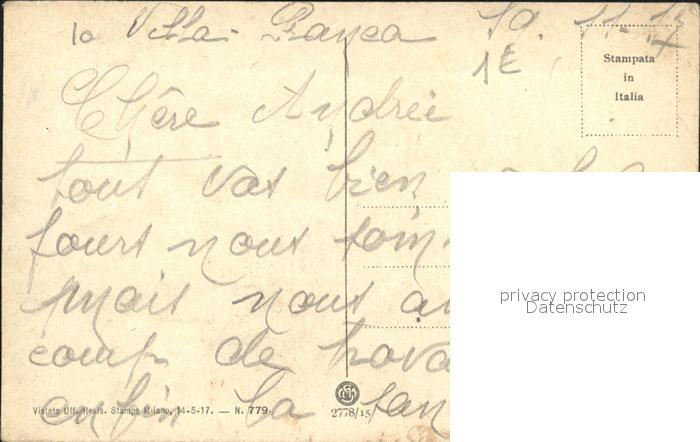 Villa-Franca 10. 11-17
1E
Stampata
in
Italia
Chère Andrée
tout vas bien
jours nous som
mais nous a
coup de trava
enfin la san
privacy protection
Datenschutz
Vistato Uff. Revis. Stampa Milano, 14-5-17. — N. 779.
2778/15